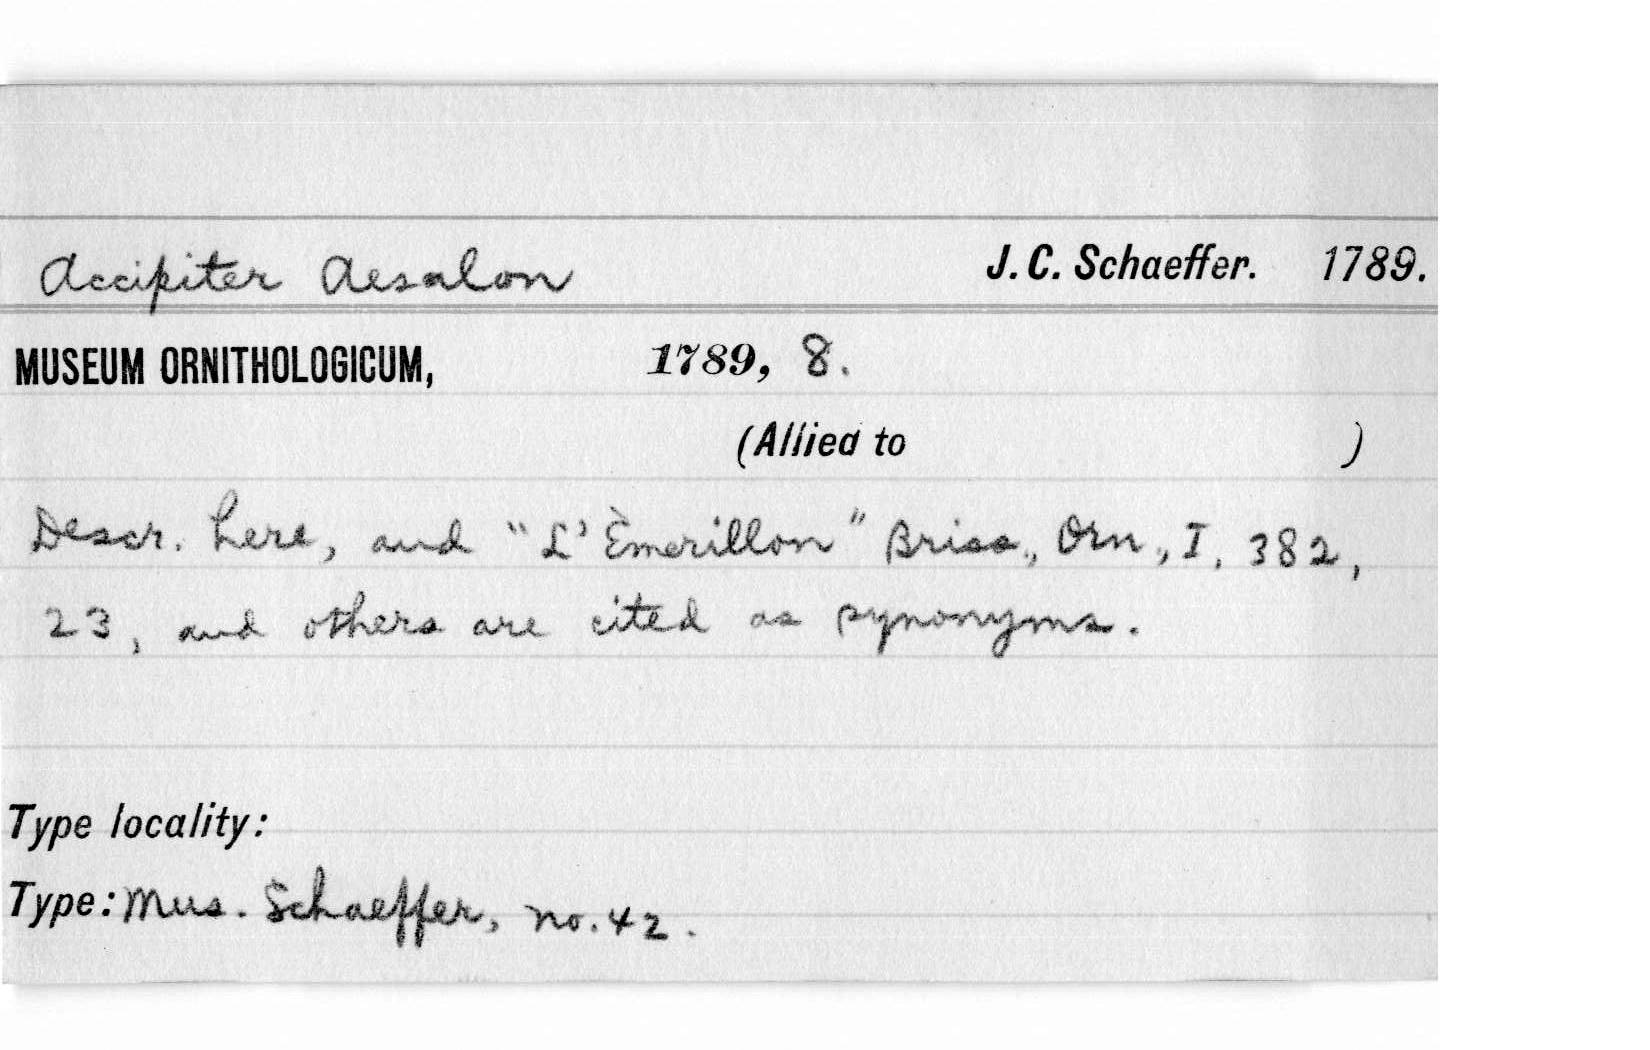 Accipiter Aesalon J. C. Schaeffer. 1789.
MUSEUM ORNITHOLOGICUM, 1789, 8.
(Allied to )
Descr. here, and "L'Èmerillon" Briss., Orn., I, 382,
23, and others are cited as synonyms.
Type locality:
Type: Mus. Schaeffer, no. 42.